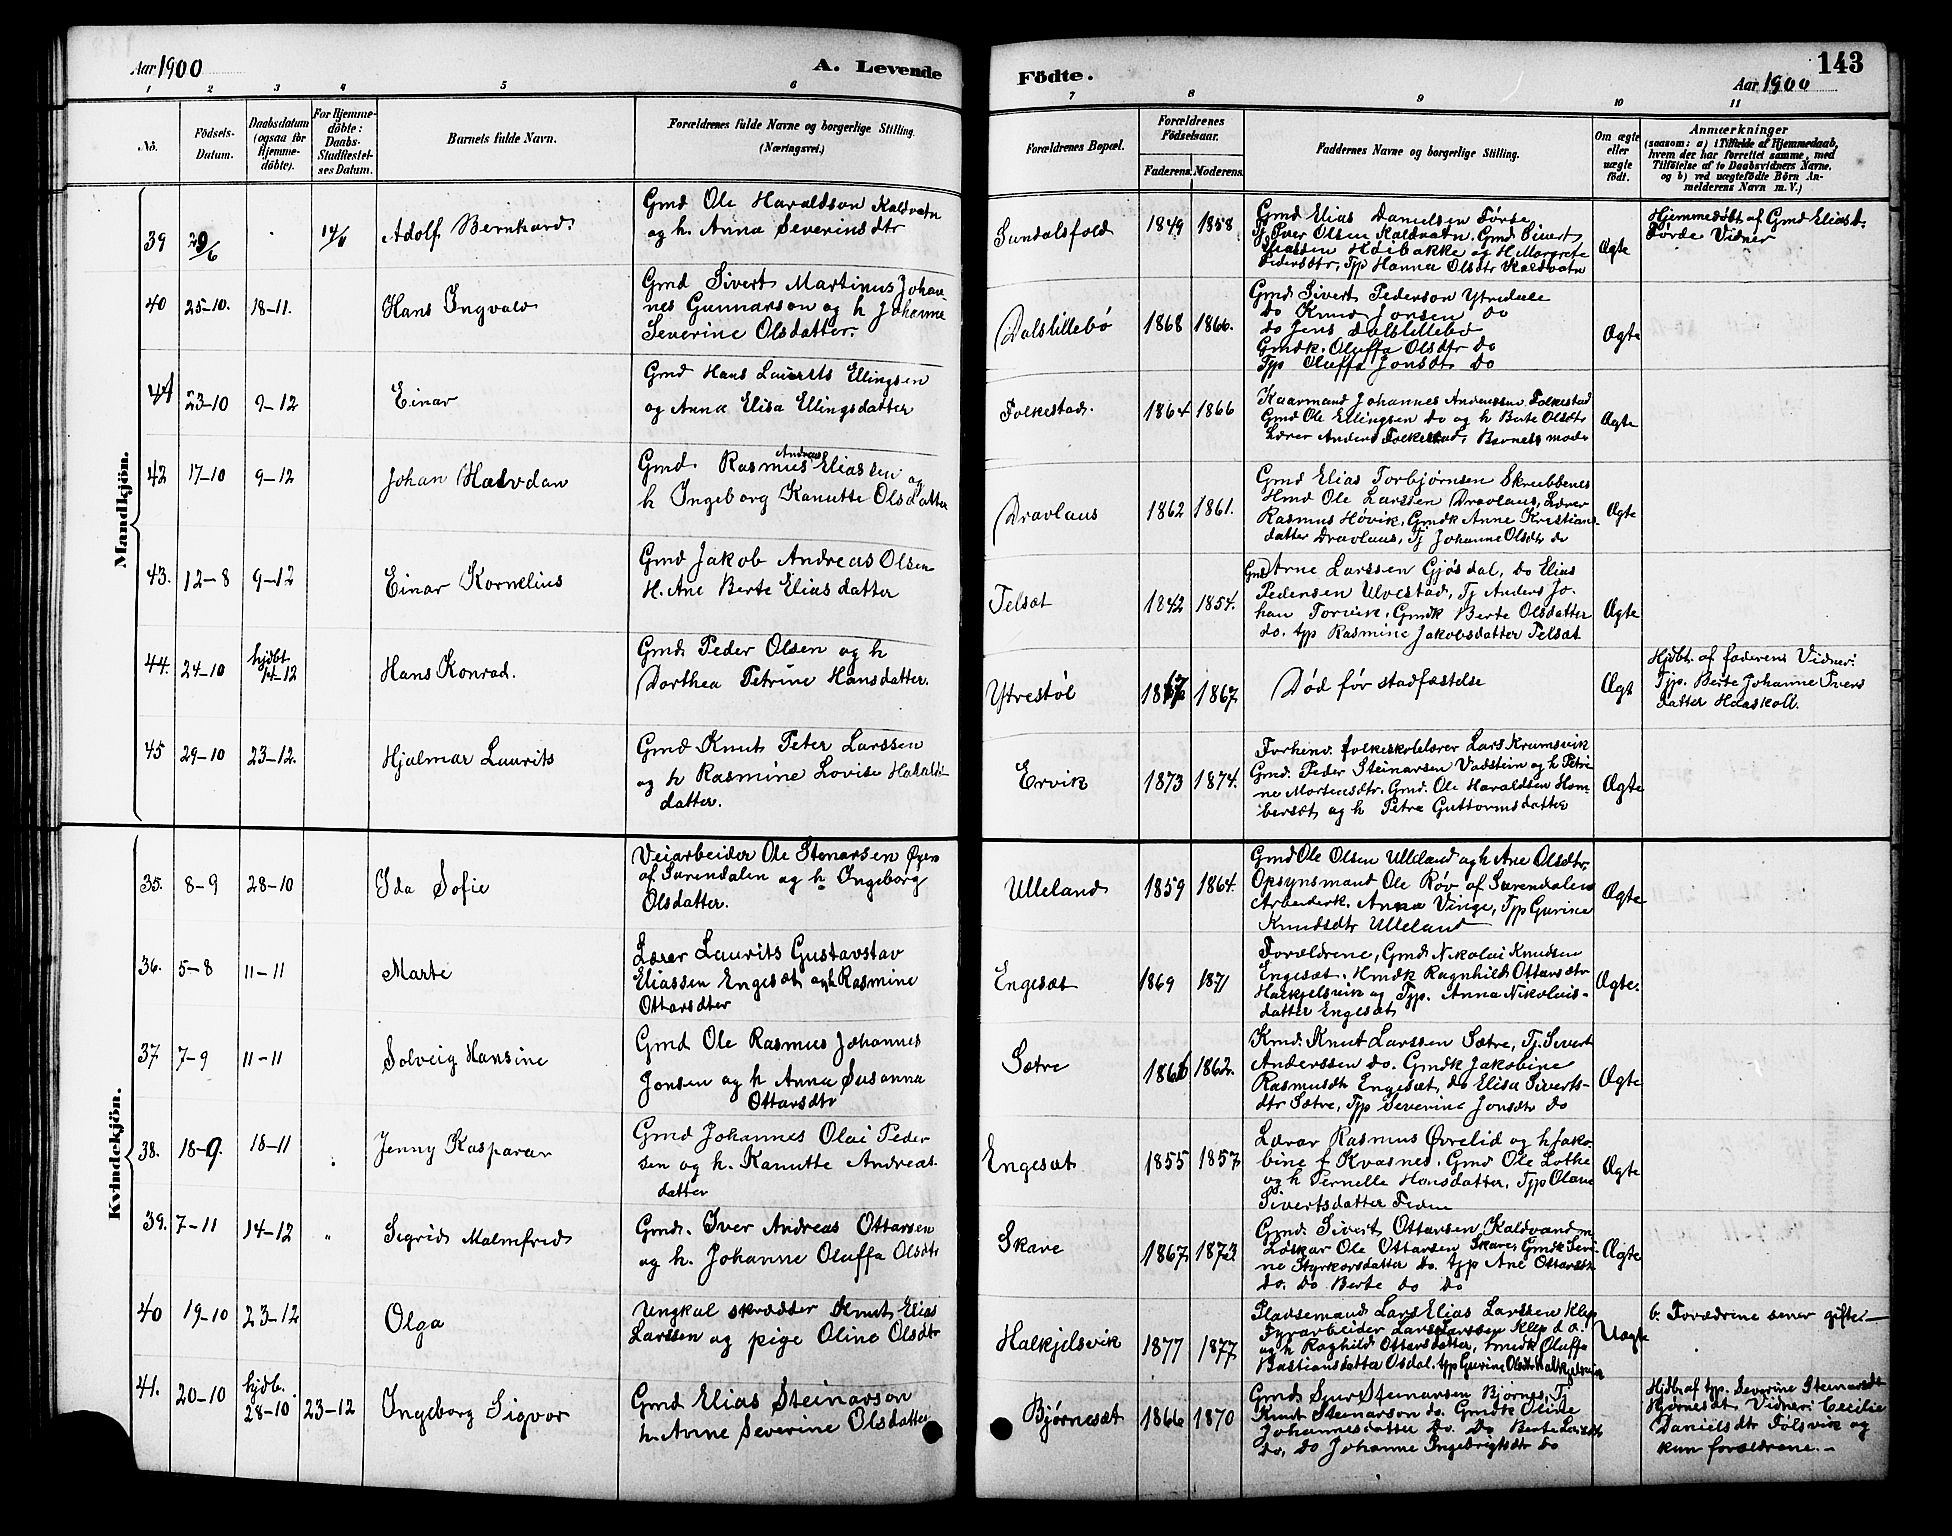 Aar 1900
A. Levende
Födte.
143
Aar 1900
1 2 3 4 5 6 7 8 9 10 11
No.
Födsels-
Datum.
Daabsdatum
(ogsaa for
Hjemme-
döbte).
For Hjemme-
döbte:
Daabs-
Stadfæstel-
ses Datum.
Barnets fulde Navn.
Forældrenes fulde Navne og borgerlige Stilling.
(Næringsvei.)
Forældrenes Bopæl.
Forældrenes
Födselsaar.
Faderens. Moderens.
Faddernes Navne og borgerlige Stilling.
Om ægte
eller
uægte
födt.
Anmærkninger
(saasom: a) i Tilfælde af Hjemmedaab,
hvem der har forrettet samme, med
Tilföielse af to Daabsvidners Navne,
og b) ved uægtefödte Börn An-
melderens Navn m. V.)
Mandkjön.
39
29/6
14/11
Adolf Bernhard
Gmd Ole Haraldson Kaldvatn
og h. Anna Severinsdtr
Sundalsfold
1849 1858
Gmd Elias Danielsen Førde
Tj Iver Olsen Kaldvatn. Gmd Sivert
Eliassen Höibakke og H Margrete
Pedersdtr, Tjp Hanna Olsdtr Kaldvatn
Ægte
Hjemmedøbt af Gmd Elias D.
Førde Vidner
40
25-10. 18-11.
Hans Ingvald
Gmd Sivert Martinus Johan-
nes Gunnarson og h Johanne
Severine Olsdatter.
Dalslillebø
1868 1866.
Gmd Sivert Pederson Ytredale
do Knud Jonsen do
do Jens Dalslillebø
Gmdk. Oluffa Olsdtr do
Tjp Oluffa Jonsdtr do
Ægte
41
23-10 9-12
Einar
Gmd Hans Laurits Ellingsen
og Anna Elisa Ellingsdatter
Folkestad.
1864 1866
Kaarmand Johannes Anderssen Folkestad
Gmd Ole Ellingsen do og h Berte Olsdtr
Lærer Anders Folkestad, Barnets moder
Ægte
42
17-10 9-12
Johan Halvdan
Gmd. Rasmus Andreas Eliassen og
h Ingeborg Kanutte Olsdatter
Dravlaus
1862 1861.
Gmd Elias Torbjørnsen Skrubbenes
Hmd Ole Larssen Dravlaus, Lærer
Rasmus Høvik, Gmdk Anne Kristians-
datter Dravlaus, Tj Johanne Olsdtr do
Ægte
43.
12-8 9-12
Einar Kornelius
Gmd Jakob Andreas Olsen
H. Ane Berte Eliasdatter
Telsæt
1842 1854.
Gmd Arne Larssen Gjøsdal, do Elias
Pedersen Ulvestad, Tj Anders Jo-
han Torvik, Gmdk Berte Olsdatter
do. tjp Rasmine Jakobsdatter Telsæt
Ægte
44.
24-10 hjdbt 14-12
Hans Konrad.
Gmd. Peder Olsen og h
Dorthea Petrine Hansdatter.
Ytrestøl
1867 1867
Død før stadfæstelse
Ægt
Hjdbt. af faderens Vidner:
Tjp. Berte Johanne Ivers
datter Haaskoll.
45
29-10 23-12.
Hjalmar Laurits
Gmd Knut Peter Larssen
og h Rasmine Lovise Harald-
datter.
Ervik
1873 1874.
Forhenv. folkeskolelærer Lars Krumsvik
Gmd. Peder Steinarsen Vadstein og h Petri-
ne Mortensdtr. Gmd. Ole Haraldsen Hom-
bersæt og h Petra Guttormsdatter
Ægte
Kvindekjön.
35.
8-9 28-10
Ida Sofie
Veiarbeider Ole Stenarsen Øyen
af Surendalen og h Ingeborg
Olsdatter.
Ulleland
1859 1864.
Gmd Ole Olsen Ulleland og h Ane Olsdtr,
Opsynsmand Ole Røv af Surendalen
Arbeiderk. Anna Vinge, Tjp Gurine
Knudsdtr Ulleland
Ægte
36.
5-8 11-11
Marte
Lærer Laurits Gustavstav
Eliassen Engesæt og h Rasmine
Ottarsdtr
Engesæt
1869 1871
Forældrene, Gmd Nikolai Knudsen
Engesæt. Hmdk Ragnhild Ottarsdtr
Halkjelsvik og Tjp. Anna Nikolais-
datter Engesæt
Ægte.
37
7-9 11-11
Solveig Hansine
Gmd Ole Rasmus Johannes
Jonsen og h Anna Susanna
Ottarsdtr
Sætre
1866 1862.
Kmd. Knut Larssen Sætre, Tj. Sivert
Anderssen do. Gmdk Jakobine
Rasmusdtr Engesæt, do Elisa Siverts-
dtr Sætre, Tjp Severine Jonsdtr do
Ægte
38.
18-9. 18-11
Jenny Kaspara
Gmd Johannes Olai Peder
sen og h. Kanutte Andreas-
datter
Engesæt
1855 1857
Lærar Rasmus Øvrelid og h Jako-
bine f Kvasnes. Gmd Ole Lothe
og h Pernelle Hansdatter, Tjp Olave
Sivertsdatter
Ægte
39.
7-11 14-12 "
Sigrid Malmfrid
Gmd. Iver Andreas Ottarsen
og h. Johanne Oluffa Olsdtr
Skare
1867 1873
Gmd Sivert Ottarsen Kaldvand
Løskar Ole Ottarsen Skare, Gmdk Seri-
ne Styrkorsdatter do. tjp Ane Ottarsdtr
do. do Berte do do
Ægte
40
19-10 23-12
Olga
Ungkal skrædder Knut Elias
Larssen og pige Oline Olsdtr
Halkjelsvik
1877 1877
Pladsemand Lars Elias Larssen Klep
Fyrarbeider Lars Larssen Klep do.
og h Raghild Ottarsdatter, Gmdk Oluffa
Bastiansdatter Osdal. tjp Gurine Olsdtr Halkjelsvik
Uægte
b. Forældrene sener gifte
41.
20-10 hjdb. 28-10 23-12
Ingeborg Sigvor
Gmd Elias Steinarson
h. Anne Severine Olsdatter
Bjørnesæt
1866 1870
Gmd Sjur Steinarsen Bjørnes, Tj
Knut Steinarson do. Gmdk Oline
Johannesdatter do. Do Berte
do, do Johanne Ingebrigtsdtr do
Hjdb. af tjp. Severine Steinarsdt
Bjørnesdt, Vidner: Cecilie
Danielsdtr Følsvik og
kun forældrene.-